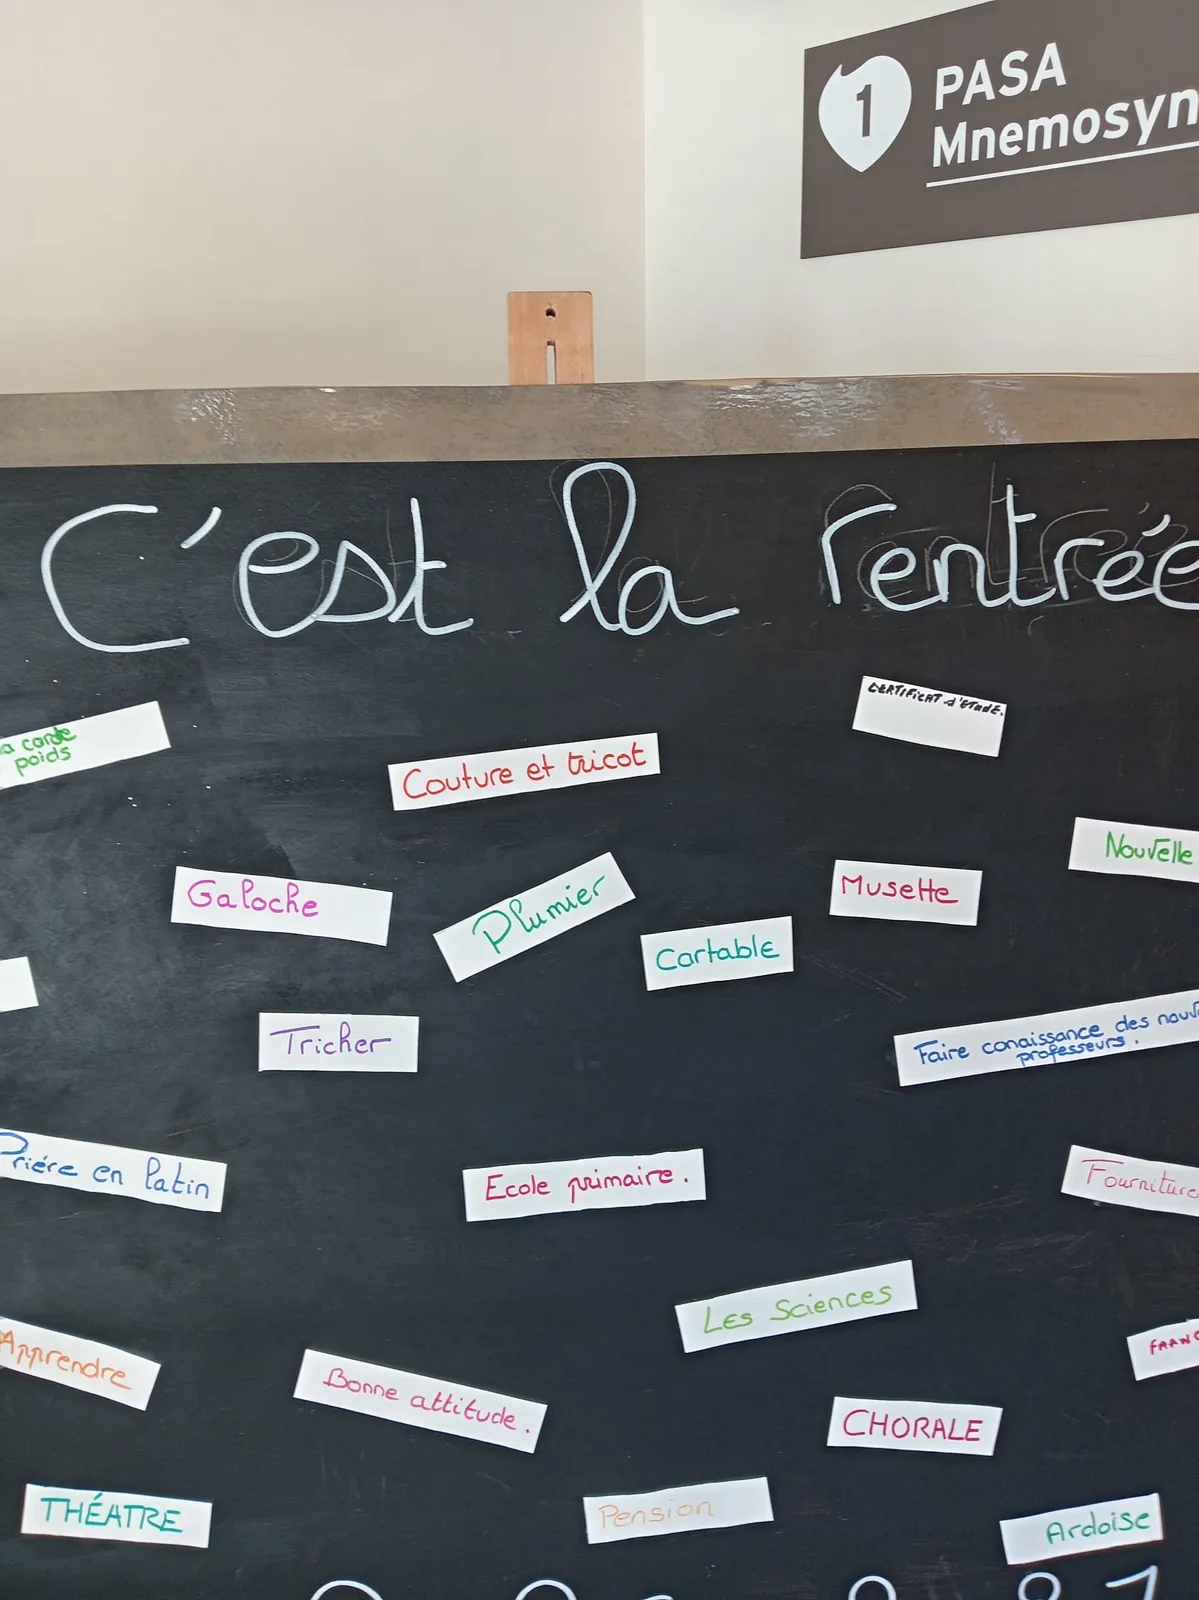 1
PASA
Mnemosyn
C'est la rentrée
a corde
poids
CERTIFICAT d'ETUDE.
Couture et tricot
Nouvelle
Galoche
Plumier
Musette
Cartable
Tricher
Faire conaissance des nouv
professeurs.
Priére en latin
Ecole primaire.
Fourniture
Les Sciences
Apprendre
FRANC
Bonne attitude.
CHORALE
THÉATRE
Pension
Ardoise